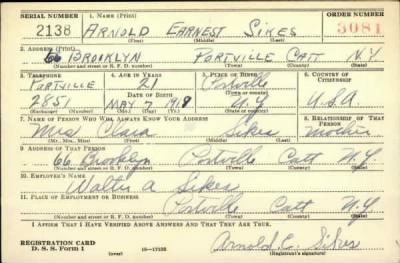 SERIAL NUMBER 1. NAME (Print) ORDER NUMBER
2138 ARNOLD EARNEST SIKES 3081
(First) (Middle) (Last)
2. ADDRESS (Print)
66 BROOKLYN PORTVILLE CATT N.Y.
(Number and street or R. F. D. number) (Town) (County) (State)
3. TELEPHONE 4. AGE IN YEARS 5. PLACE OF BIRTH 6. COUNTRY OF CITIZENSHIP
Portville 21 Portville
DATE OF BIRTH (Town or county)
2851 MAY 7 1919 N.Y. U.S.A.
(Exchange) (Number) (Mo.) (Day) (Yr.) (State or country)
7. NAME OF PERSON WHO WILL ALWAYS KNOW YOUR ADDRESS 8. RELATIONSHIP OF THAT PERSON
Mrs Clara Sikes Mother
(Mr., Mrs., Miss) (First) (Middle) (Last)
9. ADDRESS OF THAT PERSON
66 Brooklyn Portville Catt N.Y.
(Number and street or R. F. D. number) (Town) (County) (State)
10. EMPLOYER'S NAME
Walter A Sikes
11. PLACE OF EMPLOYMENT OR BUSINESS
Portville Catt N.Y.
(Number and street or R. F. D. number) (Town) (County) (State)
I AFFIRM THAT I HAVE VERIFIED ABOVE ANSWERS AND THAT THEY ARE TRUE.
REGISTRATION CARD
D. S. S. Form 1 (over) 16—17105 Arnold E. Sikes
(Registrant's signature)